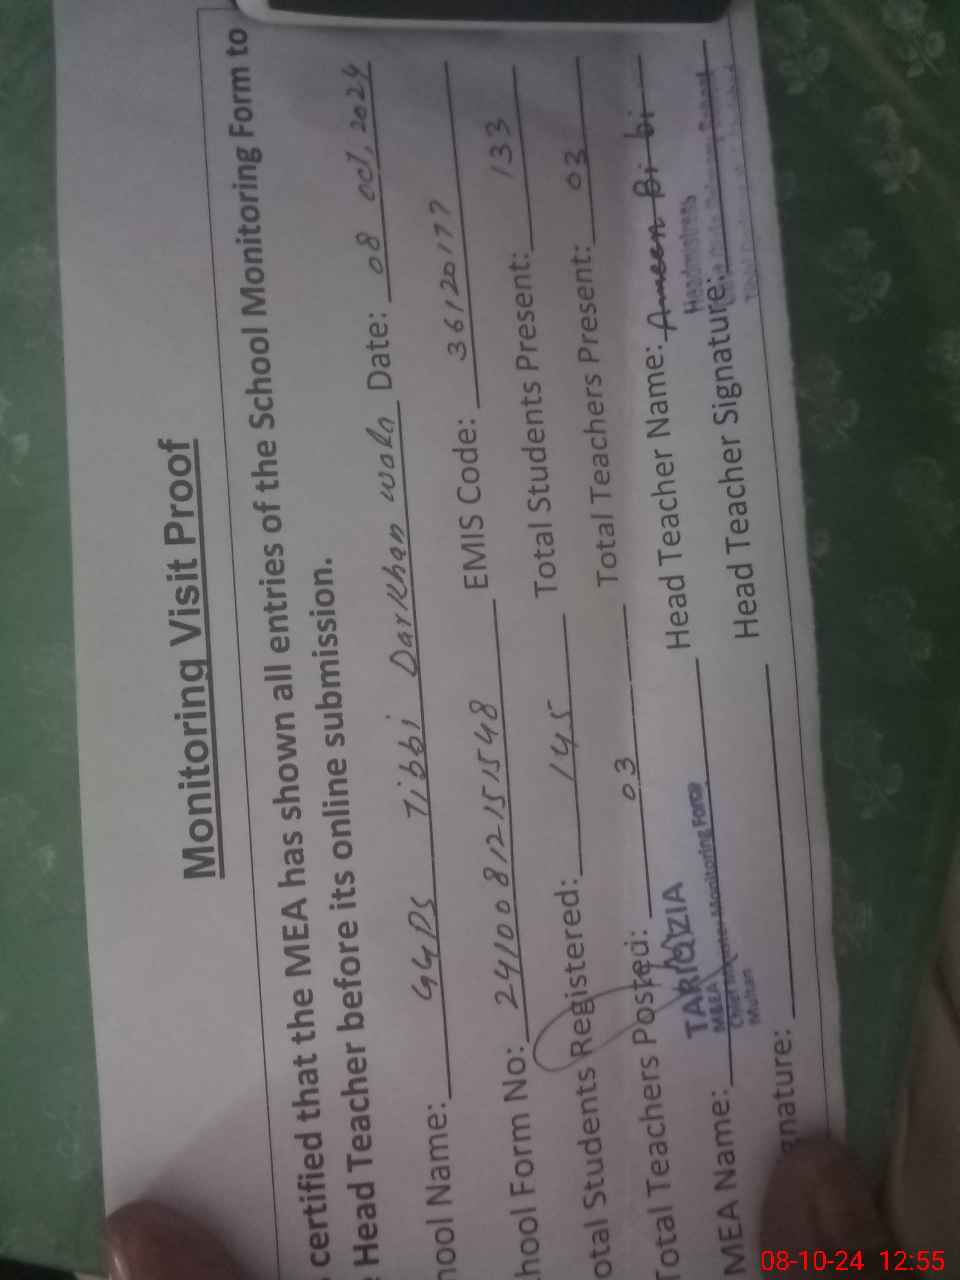 Monitoring Visit Proof
certified that the MEA has shown all entries of the School Monitoring Form to
Head Teacher before its online submission.
hool Name: GGPS Tibbi Darkhan wala Date: 08 oct, 2024
hool Form No: 2410081215 1548 EMIS Code: 36120177
otal Students Registered: 145 Total Students Present: 133
Total Teachers Posted: 03 Total Teachers Present: 03
MEA Name: TARIQ ZIA Head Teacher Name: Ameen Bi bi
M&EA
Monitoring Force
Multan
Headmistress
gnature: Head Teacher Signature:
08-10-24 12:55